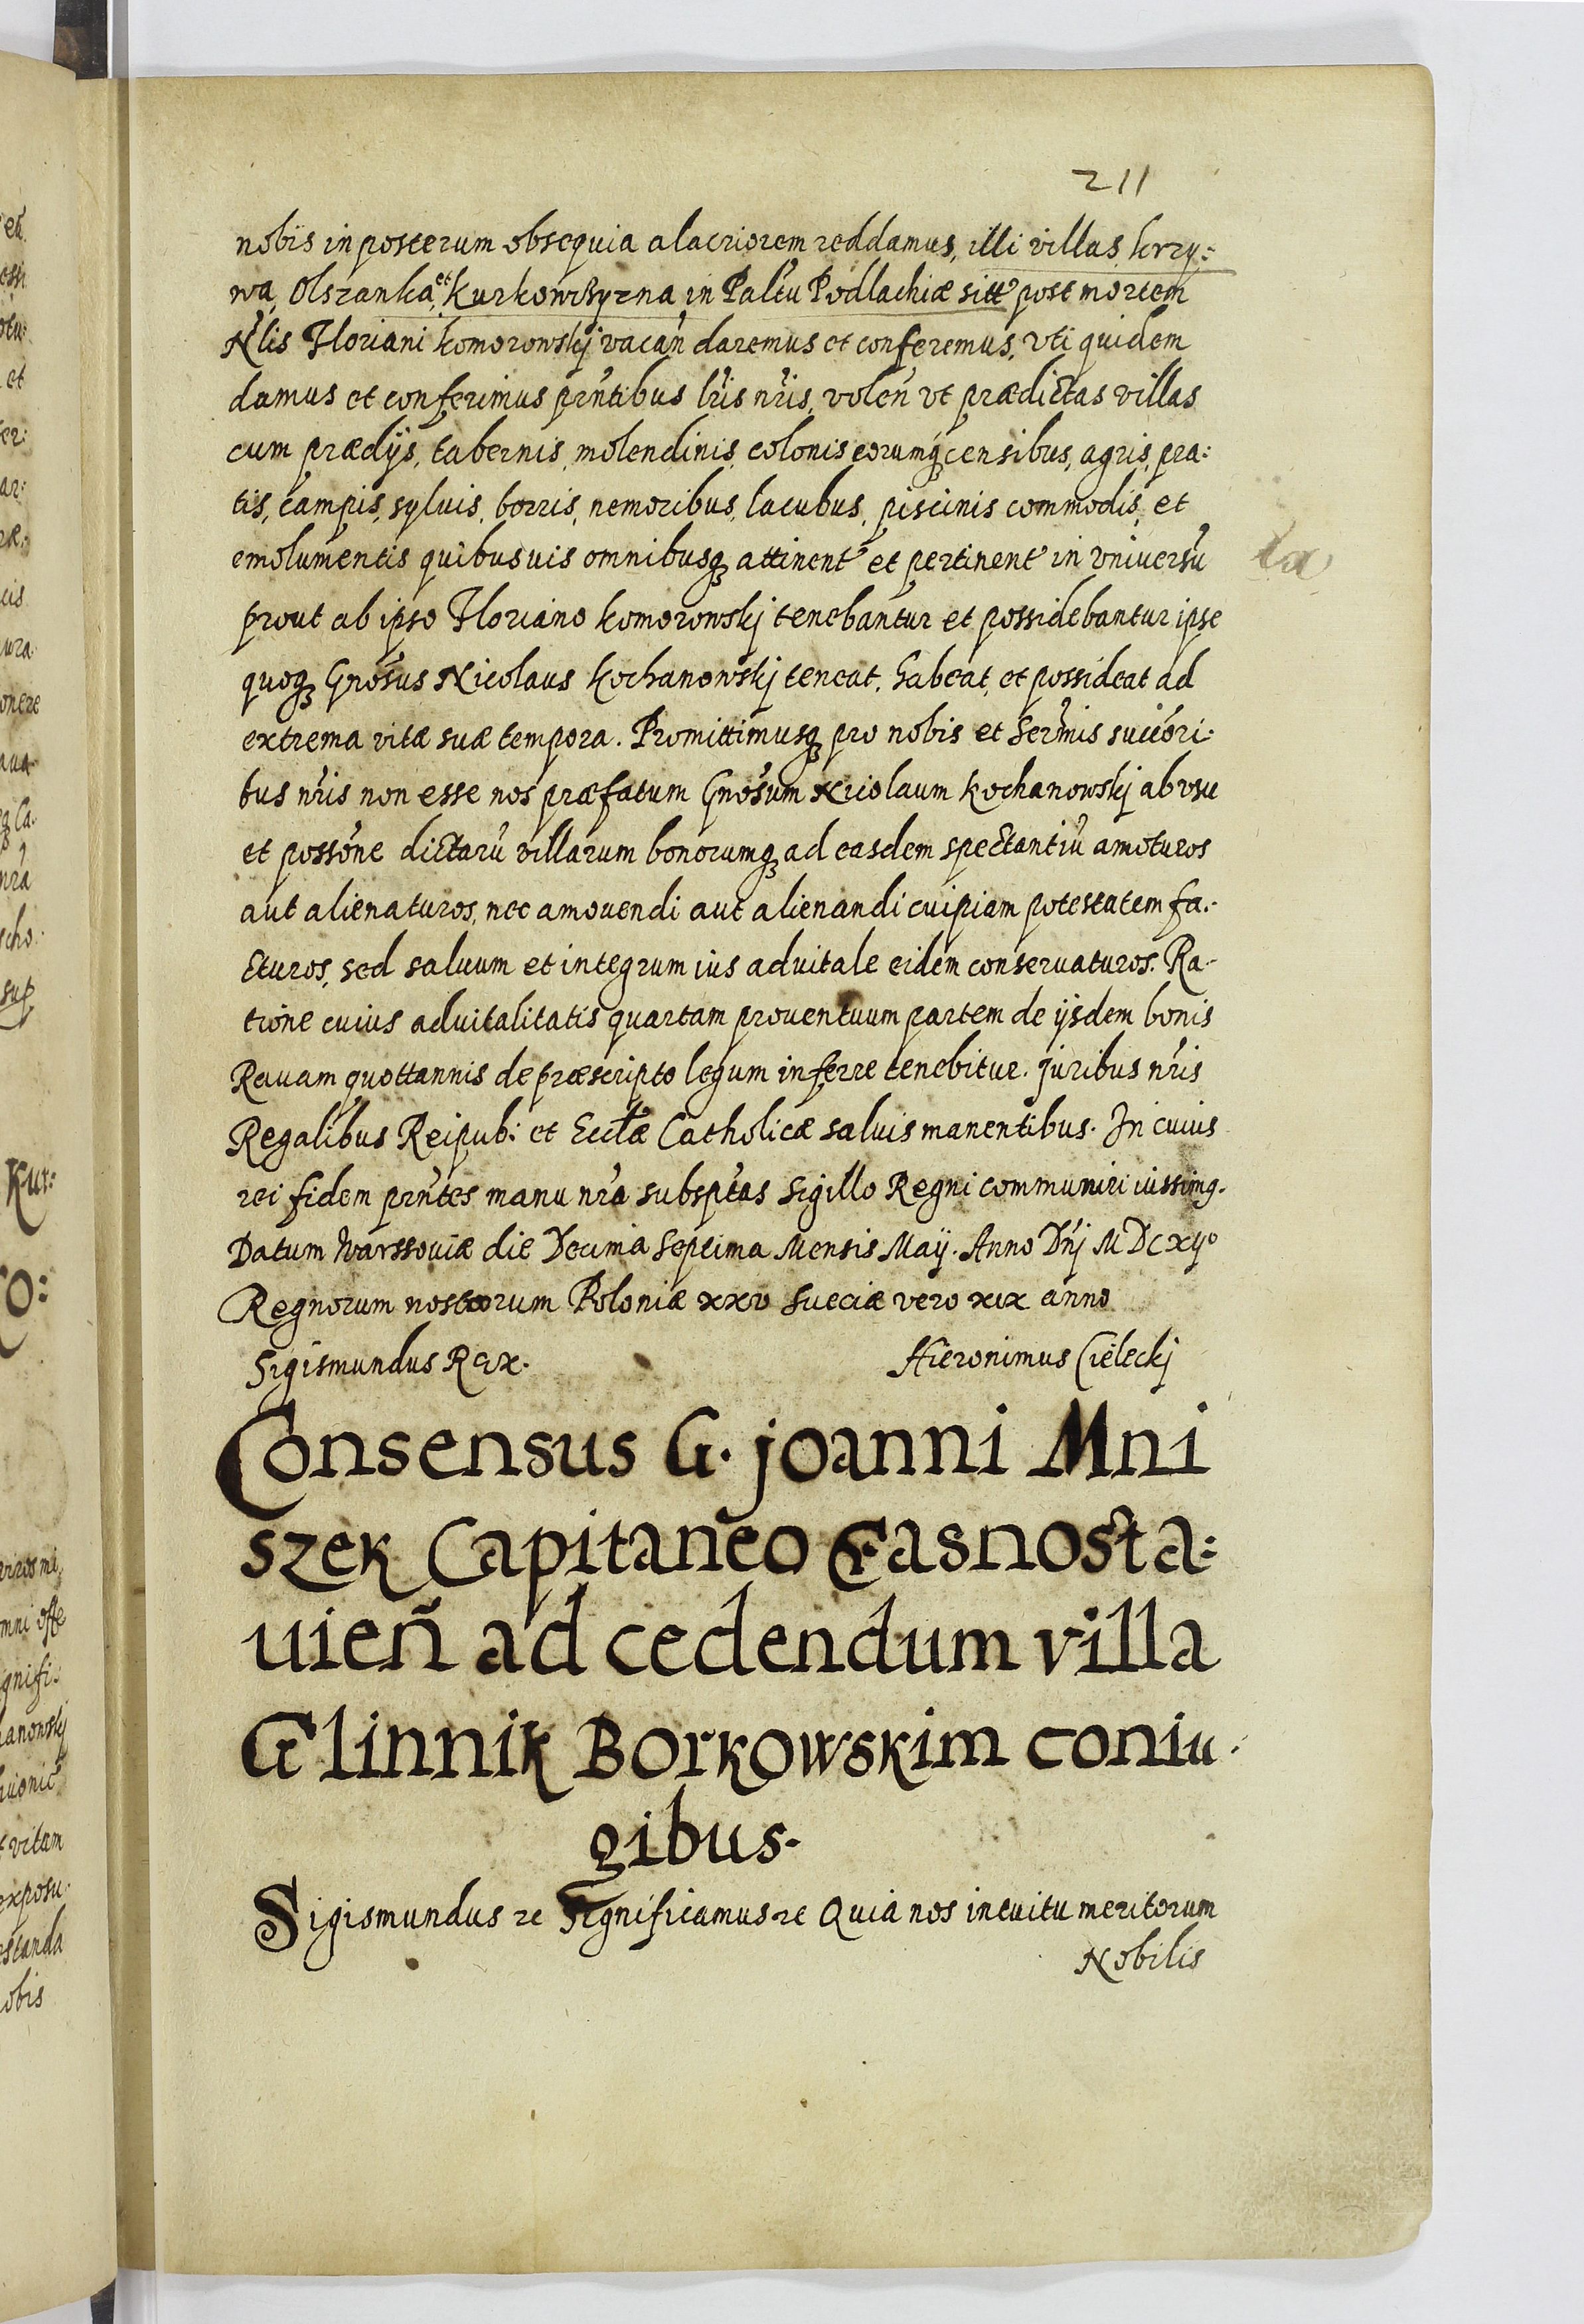 211
nobis in posterum obsequia alacriorem reddamus, illi villas krzy:
wa, Olszanka, et Kurkowszyzna in Paltu Podlachiæ sitt post mortem
Nlis Floriani komorowskj vacan̄ daremus et conferemus, vti quidem
damus et conferimus prntibus lris nris, volen̄ vt prædictas villas
cum prædijs, tabernis, molendinis, colonis eorumq censibus, agris, pra:
tis, campis, syluis, borris, nemoribus, lacubus, piscinis commodis, et
emolumentis quibusuis omnibusq attinent et pertinent in vniversū
prout ab ipso Floriano komorowskj tenebantur et possidebantur ipse
quoq Gnosus Nicolaus kochanowskj teneat, habeat, et possideat ad
extrema vitæ suæ tempora. Promittimusq pro nobis et Sermis succori-
bus nris non esse nos præfatum Gnosum Nicolaum kochanowskj ab vsu
et possone dictarū villarum bonorumq ad easdem spectantiū amoturos
aut alienaturos, nec amouendi aut alienandi cuipiam potestatem fa-
cturos, sed saluum et integrum ius aduitale eidem conseruaturos. Ra-
tione cuius aduitalitatis quartam prouentuum partem de ijsdem bonis
Rauam quottannis de præscripto legum inferre tenebitur. juribus nris
Regalibus Reipub: et Ecclæ Catholicæ saluis manentibus. In cuius
rei fidem prntes manu nra subsptas Sigillo Regni communiri iussimq.
Datum Warssouiæ die Decima Septima Mensis Maij. Anno Dnj M DC xijo
Regnorum nostrorum Poloniæ xxv Sueciæ vero xix anno
Sigismundus Rex. Hieronimus Cieleckj
Consensus G. joanni Mni
szek Capitaneo Crasnosta:
uien̄ ad cedendum villa
Glinnik Borkowskim coniu-
gibus.
Sigismundus rc Significamus rc Quia nos intuitu meritorum
Nobilis